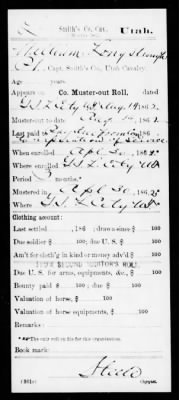 Smith's Co. Cav. Utah.
William Longstrough
Pt., Capt. Smith's Co., Utah Cavalry.
Age years.
Appears on Co. Muster-out Roll, dated
G. S. L. City U.T. Aug 14, 1862.
Muster-out to date Aug 14, 1862.
Last paid to
When enrolled Apl 30, 1862.
Where enrolled G. S. L. City U.T.
Period 3 months.
Mustered in Apl 30, 1862.
Where G. S. L. City U.T.
Clothing account:
Last settled , 186 ; drawn since $ 100
Due soldier $ 100; due U. S. $ 100
Am't for cloth'g in kind or money adv'd $ 100
Due U. S. for arms, equipments, &c., $ 100
Bounty paid $ 100; due $ 100
Valuation of horse, $ 100
Valuation of horse equipments, $ 100
Remarks:
Book mark:
(361c) Copyist.